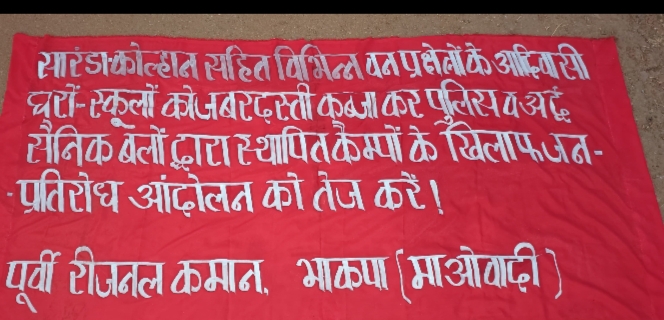 सारंडा-कोल्हान सहित विभिन्न वन प्रक्षेत्रों के आदिवासी
घरों-स्कूलों को जबरदस्ती कब्जा कर पुलिस व अर्द्ध
सैनिक बलों द्वारा स्थापित कैम्पों के खिलाफ जन-
-प्रतिरोध आंदोलन को तेज करें!
पूर्वी रीजनल कमान. भाकपा (माओवादी)